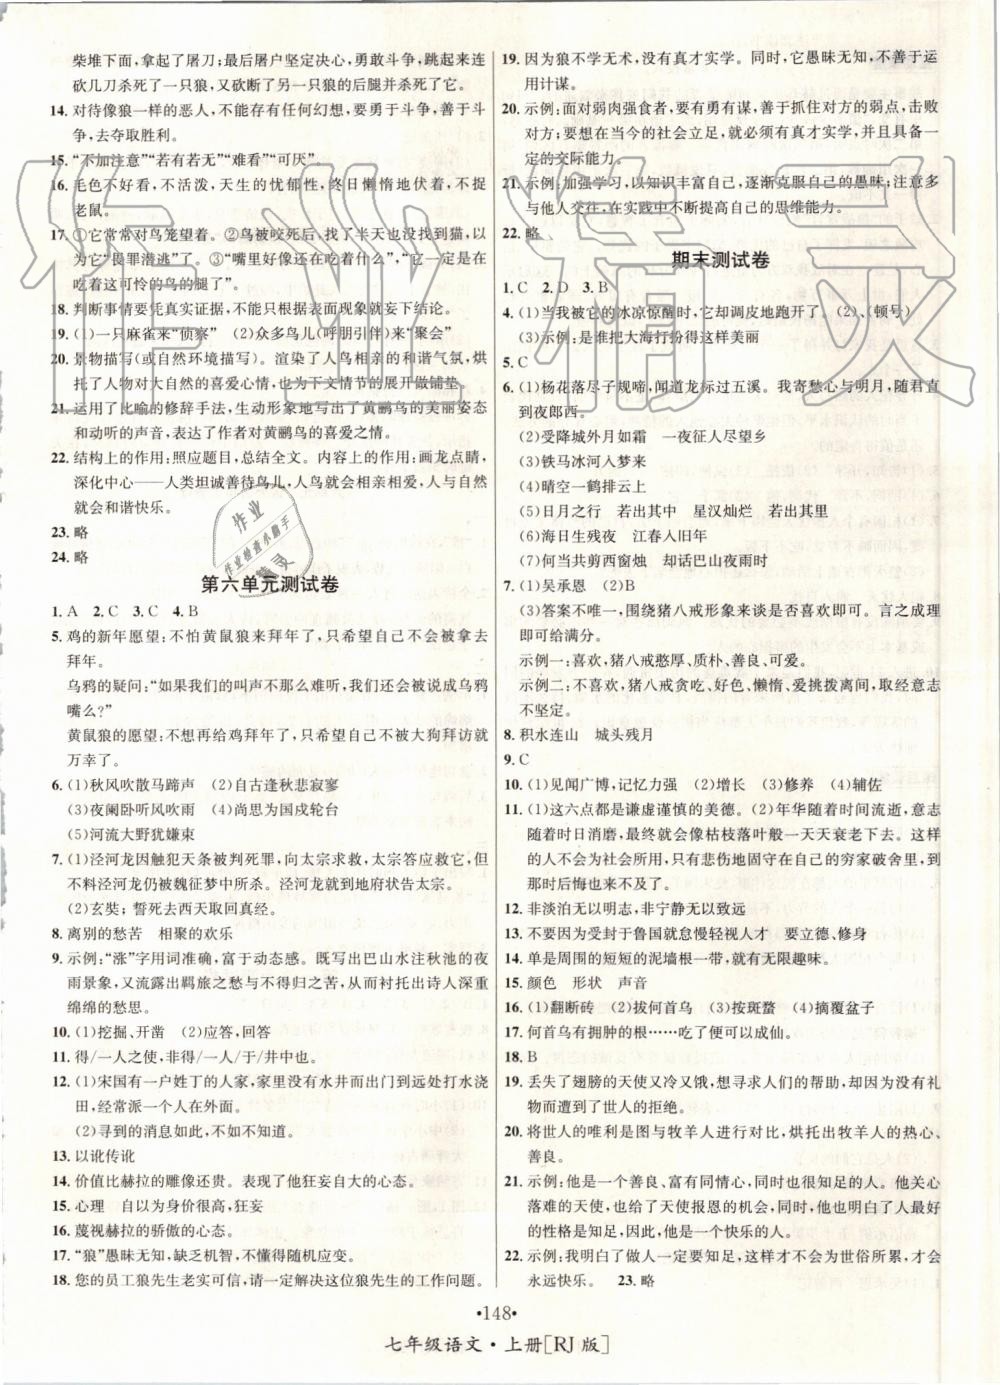 柴堆下面，拿起了屠刀。最后屠户坚定决心，勇敢斗争，上跳起来连
砍几刀杀死了一只狼，又砍断了另一只狼的后腿并杀死了它。
14. 对待像狼一样的恶人，不能存有任何幻想，要勇于斗争，善于斗
争，去夺取胜利。
15. “不加注意”“若有若无”“难看”“可厌”。
16. 毛色不好看，不活泼，天生的忧郁性，终日懒惰地伏着，不捉
老鼠。
17. ①它常常对鸟笼望着。②鸟被咬死后，找了半天也没找到猫，以
为它“畏罪潜逃”了。③“嘴里好像还在吃着什么”，“它一定是在
吃着这可怜的鸟的腿了”。
18. 判断事情要凭真实证据，不能根据表面现象就妄下结论。
19. (1)一只麻雀来“侦察”　(2)众多鸟儿(呼朋引伴)来“聚会”
20. 景物描写(或自然环境描写)。渲染了人鸟相亲的和谐气氛，烘
托了人物对大自然的喜爱心情，也为下文情节的展开做铺垫。
21. 运用了比喻的修辞手法，生动形象地写出了黄鹂鸟的美丽姿态
和动听的声音，表达了作者对黄鹂鸟的喜爱之情。
22. 结构上的作用：照应题目，总结全文。内容上的作用：画龙点睛，
深化中心——人类坦诚善待鸟儿，鸟儿就会亲近人类，自然就
会和谐快乐。
23. 略
24. 略
第六单元测试卷
1. A　2. C　3. C　4. B
5. 鸡的新年愿望：不怕黄鼠狼来拜年了，只希望自己不会被拿去
拜年。
乌鸦的疑问：“如果我们的叫声不那么难听，我们还会被说成乌鸦
嘴么？”
黄鼠狼的愿望：不想再给鸡拜年了，只希望不被大狗拜访就
万幸了。
6. (1)秋风吹散马蹄声　(2)自古逢秋悲寂寥
(3)夜阑卧听风吹雨　(4)尚思为国戍轮台
(5)河流大野犹嫌束
7. (1)泾河龙因触犯天条被判死罪，向太宗求救，太宗答应救它，但
不料泾河龙仍被魏征梦中所杀。泾河龙就到地府状告太宗。
(2)玄奘；誓死去西天取回真经。
8. 离别的愁苦　相聚的欢乐
9. 示例：“涨”字用词准确，富于动态感。既写出巴山水注秋池的夜
雨景象，又流露出羁旅之愁与不得归之苦，从而衬托出诗人深重
绵绵的愁思。
10. (1)挖掘、开凿　(2)应答，回答
11. 得/一人之使，非得/一人/于/井中也。
12. (1)宋国有一户姓丁的人家，家里没有水井而出门去打水浇
田，经常派一个人在外面。
(2)寻到的消息如此，不如不知道。
13. 以讹传讹
14. 价值比赫拉的雕像还贵。表现了赫耳墨斯爱慕虚荣的心态。
15. 心理　自以为身价很高，狂妄
16. 蔑视赫拉的骄傲的心态。
17. “狼”愚昧无知，缺乏机智，不懂得随机应变。
18. 您的员工狼先生老实可信，请一定解决这位狼先生的工作问题。
19. 因为狼不学无术，没有真才实学。同时，它愚昧无知，不善于运
用计谋。
20. 示例：面对弱肉强食者，要有勇有谋，善于抓住对方的弱点，击败
对方；要想在当今的社会立足，就必须有真才实学，并且具备一
定的交际能力。
21. 示例：加强学习，以知识丰富自己，逐渐克服自己的愚昧；注意多
与他人交往，在实践中不断提高自己的思维能力。
22. 略
期末测试卷
1. C　2. D　3. B
4. (1)当我被它的冰凉惊醒时，它却调皮地跑开了。(2)、(顿号)
(3)示例：是谁把大海打扮得这样美丽
5. C
6. (1)杨花落尽子规啼，闻道龙标过五溪。我寄愁心与明月，随君直
到夜郎西。
(2)受降城外月如霜　一夜征人尽望乡
(3)铁马冰河入梦来
(4)晴空一鹤排云上
(5)日月之行　若出其中　星汉灿烂　若出其里
(6)海日生残夜　江春入旧年
(7)何当共剪西窗烛　却话巴山夜雨时
7. (1)吴承恩　(2)B
(3)答案不唯一，围绕猪八戒形象来谈是否喜欢即可。言之成理
即可给满分。
示例一：喜欢，猪八戒憨厚、质朴、善良、可爱。
示例二：不喜欢，猪八戒贪吃、好色、懒惰、爱挑拨离间，取经意志
不坚定。
8. 积水连山　城头残月
9. C
10. (1)见闻广博，记忆力强　(2)增长　(3)修养　(4)辅佐
11. (1)这六点都是谦虚谨慎的美德。(2)年华随着时间流逝，意志
随着时日消磨，最终就会像枯枝落叶般一天天衰老下去。这样
的人不会为社会所用，只有悲伤地固守在自己的穷家破舍里，到
那时后悔也来不及了。
12. 非淡泊无以明志，非宁静无以致远
13. 不要因为受封于鲁国就怠慢轻视人才　要立德、修身
14. 单是周围的短短的泥墙根一带，就有无限趣味。
15. 颜色　形状　声音
16. (1)翻断砖　(2)拔何首乌　(3)按斑蝥　(4)摘覆盆子
17. 何首乌有拥肿的根……吃了便可以成仙。
18. B
19. 丢失了翅膀的天使又冷又饿，想寻求人们的帮助，却因没有礼
物而遭到了世人的拒绝。
20. 将世人的唯利是图与牧羊人进行对比，烘托出牧羊人的热心、
善良。
21. 示例：他是一个善良、富有同情心，易满足、快乐的人。他关心
落难的天使，也获得了天使报恩的机会，同时他认为自己已拥有
的最好的，性格特征非常知足，因此，他是一个快乐的人。
22. 示例：我明白了做人一定要知足，这样才不会为世俗所累，才会
永远快乐。　23. 略
•148•
七年级语文·上册[RJ版]
作业精灵
作业
作业检查小助手
精灵